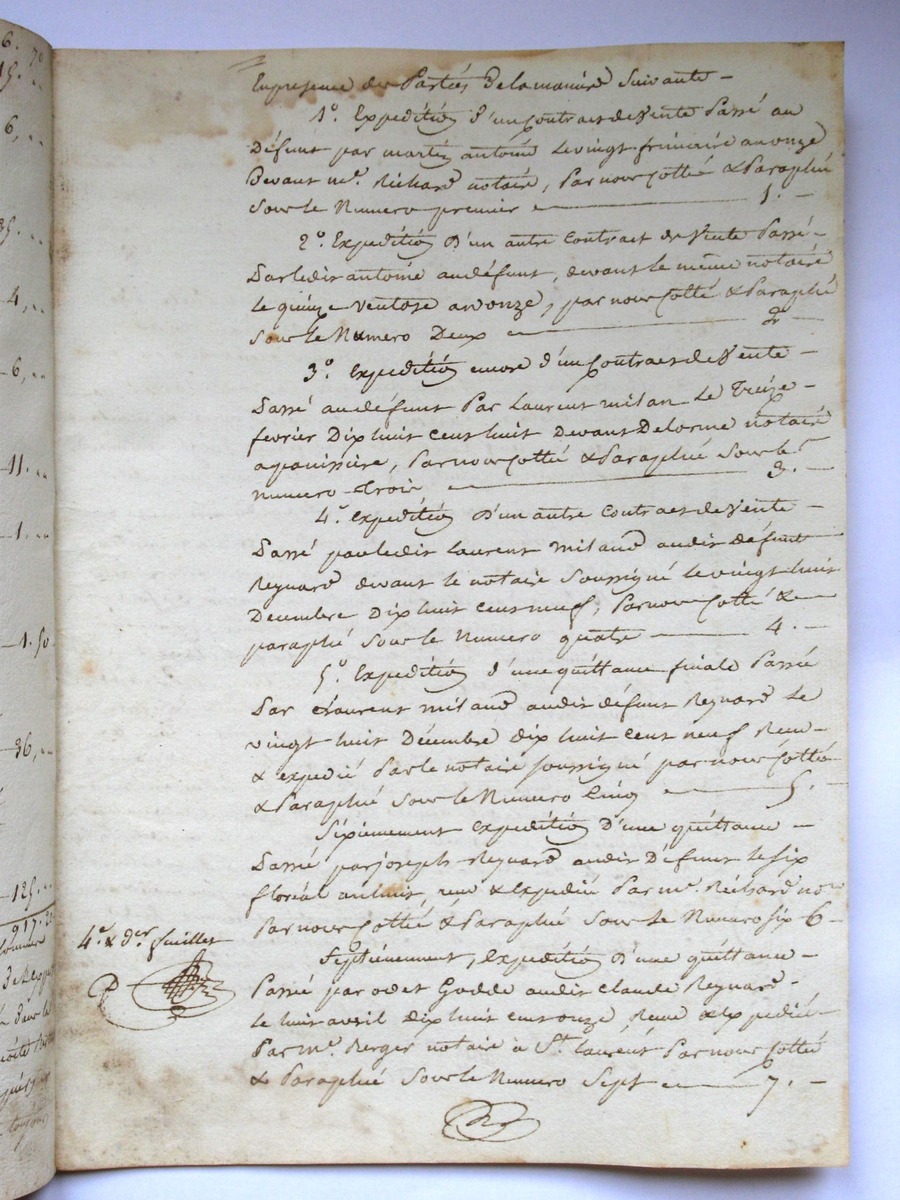 6. 70
15. ..
6, ..
35. ..
4, ..
6, ..
11. ..
1. ..
1. 50
36, ..
125. ..
917. 20
En presence des Parties De la maniere Suivante —
1°. Expedition d'un Contrat de Vente Passé au
Défunt par martin antoine le vingt frimaire an onze
Devant me. Richard notaire, Par nous Cotté & Paraphé
Sous le Numero premier — 1. —
2°. Expedition D'un autre Contract de Vente Passé —
Par ledit antoine au défunt, devant le même notaire
le quinze Ventose an onze, par nous Cotté & Paraphé
Sous le Numero Deux — 2. —
3°. Expedition encore d'un Contract de Vente —
Passé au défunt Par Laurent milan Le Treize —
fevrier Dix huit Cent huit Devant Delorme notaire
, Par nous Cotté & Paraphé Sous le
numero Trois — 3. —
4°. Expedition D'un autre Contract de Vente —
Passé par ledit Laurent Miland audit Défunt
Reynard devant le notaire Soussigné le vingt huit
Decembre Dix huit Cent neuf, Par nous Cotté &
paraphé Sous le Numero quatre — 4. —
5°. Expedition d'une quittance finale Passée
Par Laurent Miland audit défunt Reynard Le
vingt huit Décembre dix huit Cent neuf Reçu —
& expedié Par le notaire soussigné par nous Cotté
& Paraphé Sous le Numero Cinq — 5. —
Sixiemement Expedition D'une quittance —
Passée par joseph Reynard audit Défunt le six
floréal an huit, reçue & Expediée Par me. Richard nore
Par nous Cotté & Paraphé Sous Le Numero six 6
Septiémement, Expedition D'une quittance —
Passée par odet Godde audit Claude Reynard —
le huit avril dix huit Cent onze, Reçue & Expediée
Par me. Berger notaire à St. Laurent Par nous Cotté
& Paraphé Sous le Numero Sept — 7. —
4e. & der. feuillet